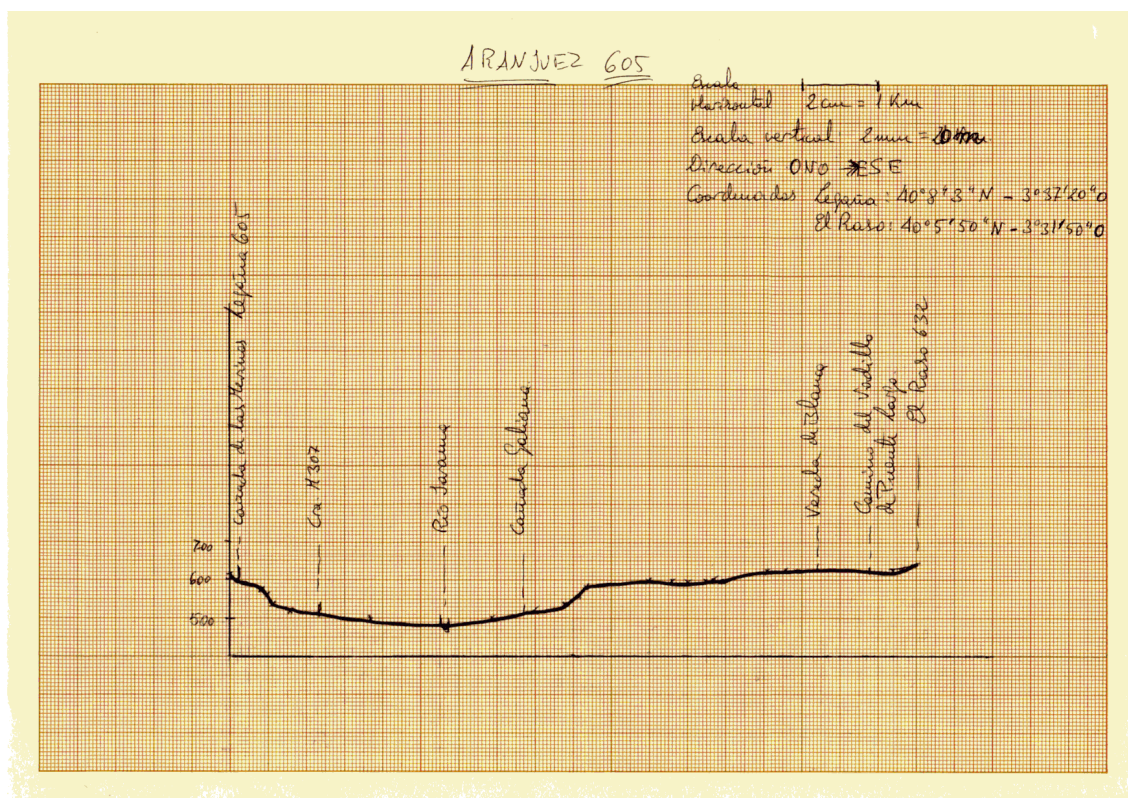 ARANJUEZ 605
Escala
Horizontal 2 cm = 1 Km
Escala vertical: 2 mm =
Dirección ONO → ESE
Coordenadas Legaña: 40°8'3"N - 3°37'20"O
El Raso: 40°5'50"N - 3°31'50"O
Cañada de las Merinas
Legaña 605
Cra M307
Río Jarama
Cañada Galiana
Vereda de Blanca
Camino del Vadillo
de Puente Largo.
El Raso 632
700
600
500